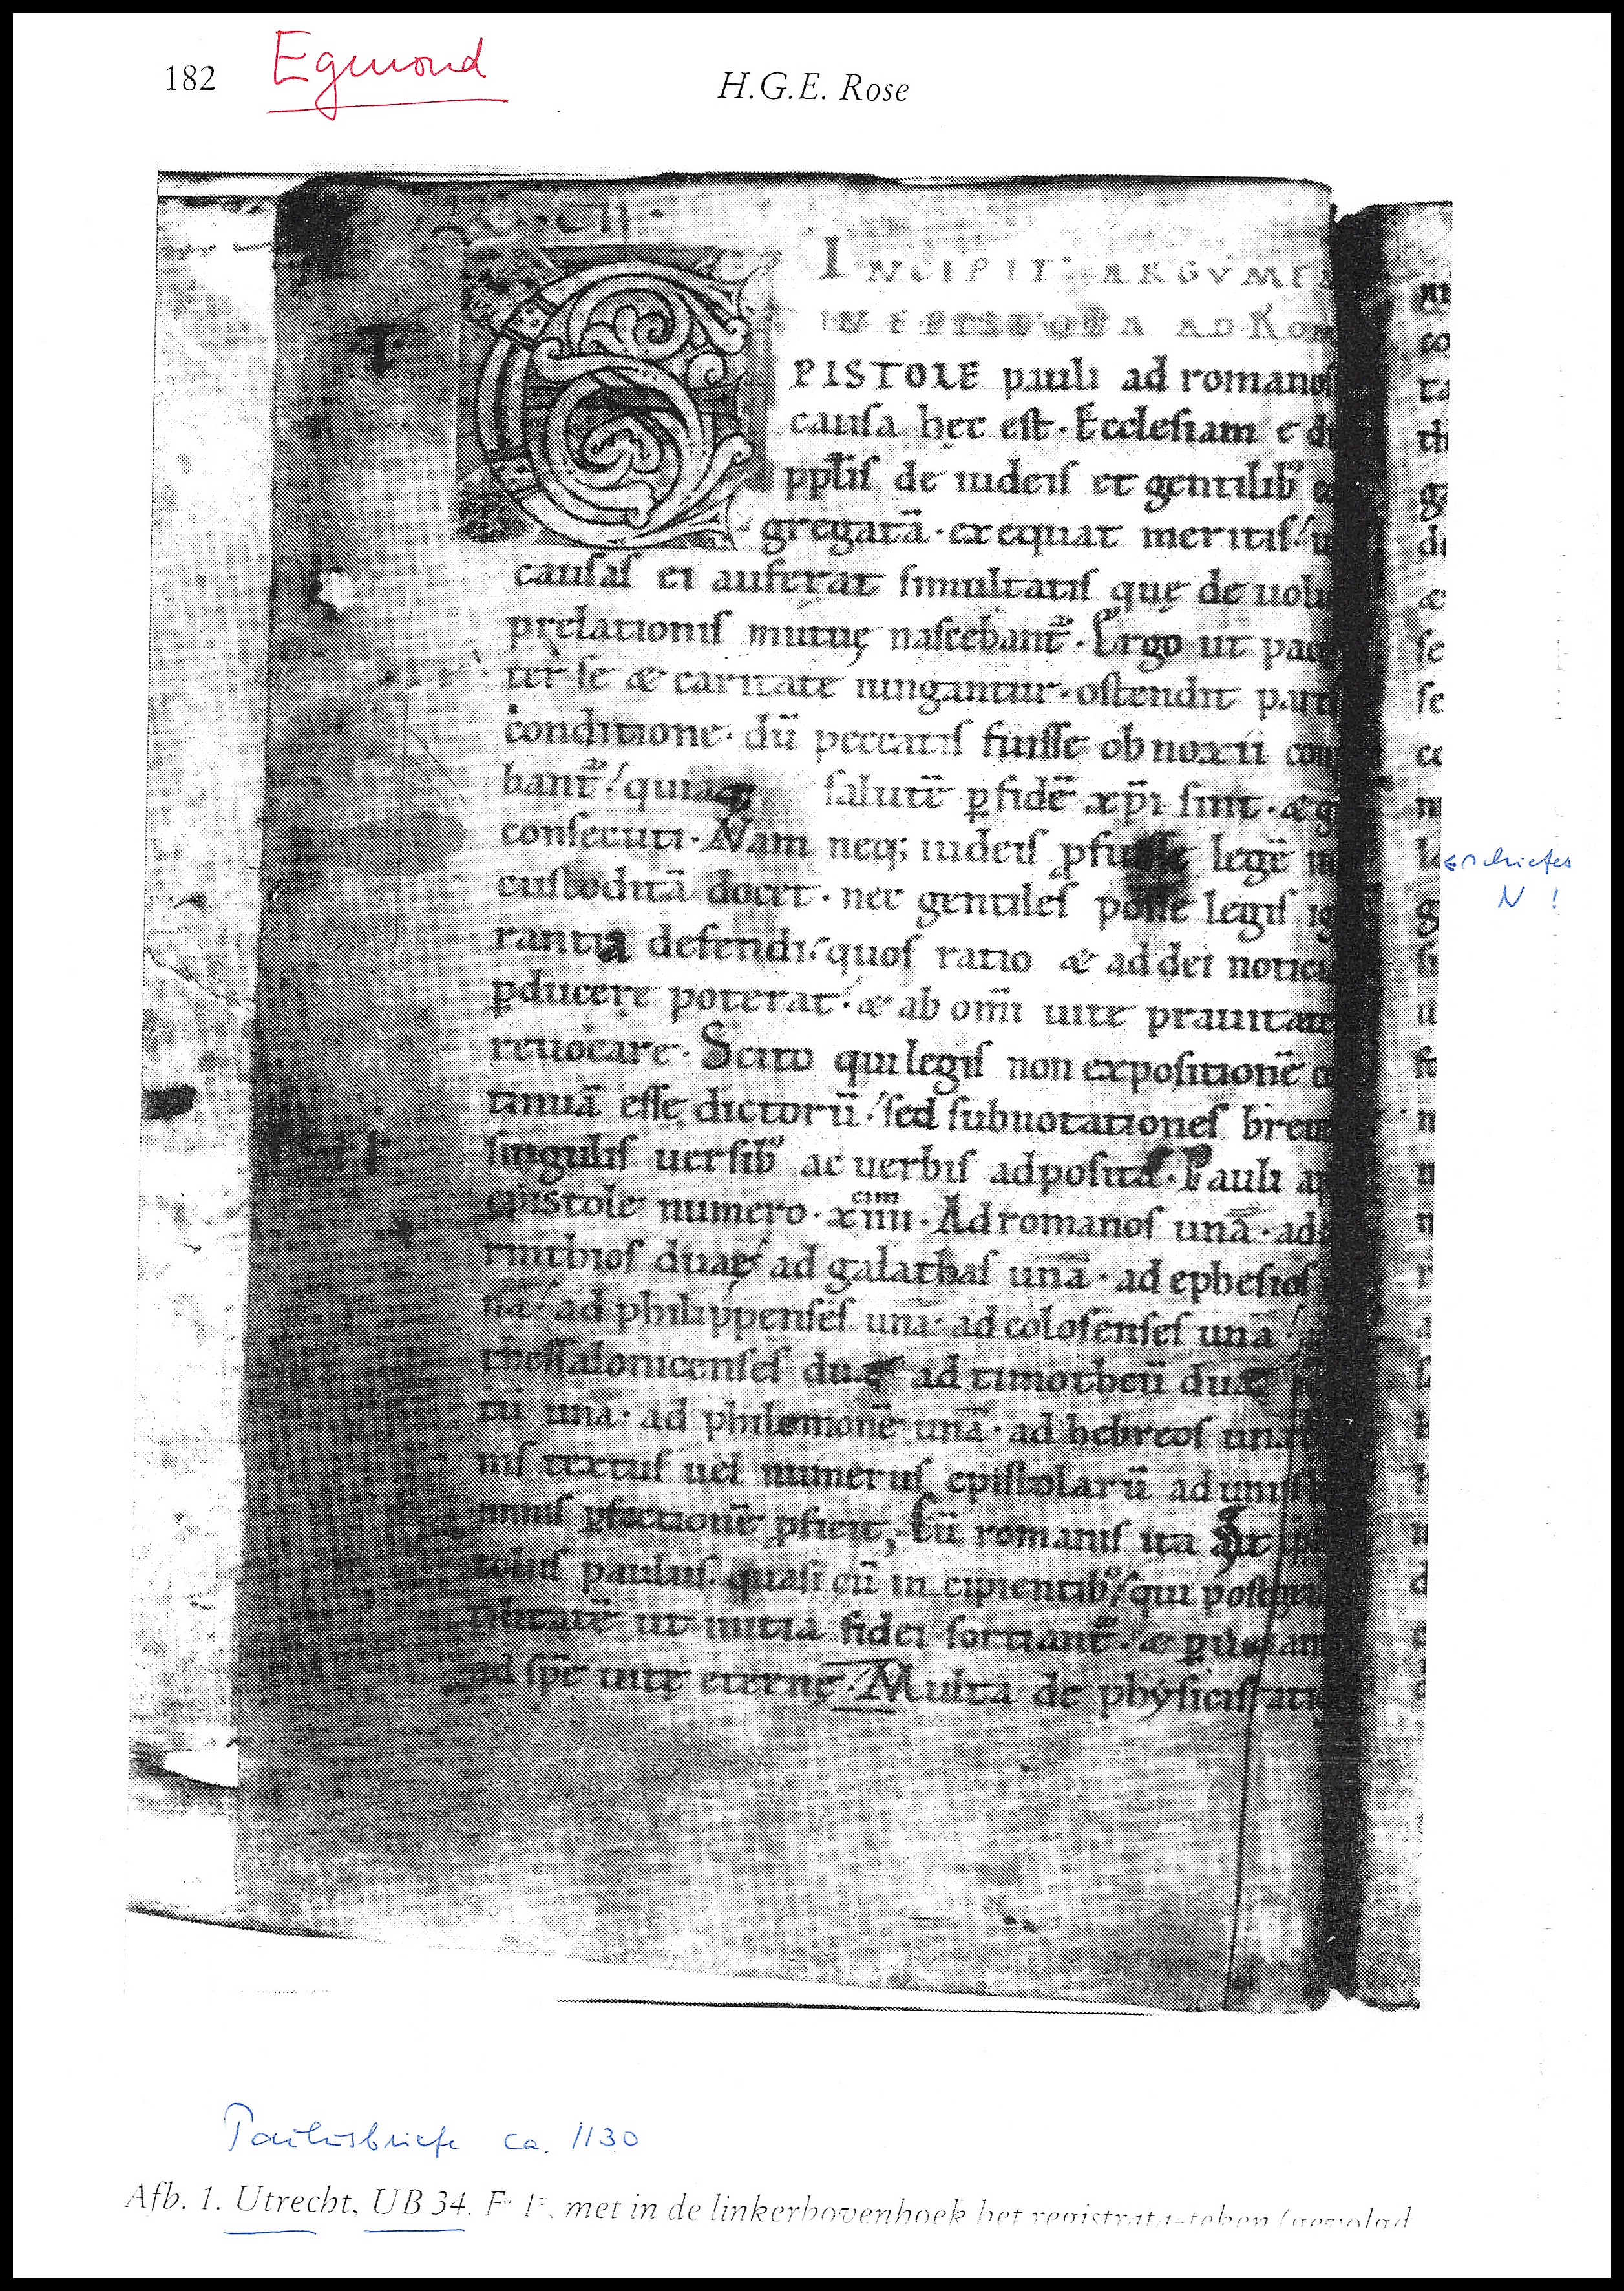 182 Egmond H.G.E. Rose
INCIPIT ARGVME
IN EPISTOLA AD ROM
PISTOLE pauli ad romanoſ
cauſa hęc eſt· Eccleſiam e
pplīſ de iudeiſ et gentilib᾽
gregatā· exequat meritiſ
cauſaſ ei auferat ſimultatiſ quę de uol
prelationiſ mutuę naſcebant᷑· Ergo ut pac
ter ſe & caritate iungantur· oſtendit pari
conditione· dū peccatiſ fuiſſe obnoxii
bant᷑· quia salutē ꝑ fidē xp̄i ſint· &
conſecuti· Nam neq; iudeiſ ꝓfuiſſe legē
cuſtoditā docet· nec gentileſ poſſe legiſ ig
rantia defendi· quoſ ratio & ad dei notici
ꝑducere poterat· & ab om̄i uite prauitate
reuocare· Scito qui legiſ non expoſitionē
tinuā eſſe dictorū· ſed ſubnotationeſ breu
ſinguliſ uerſib᾽ ac uerbiſ adpoſita· Pauli
epistole numero· xiiii· Ad romanoſ unā· ad
rinthioſ duaſ ad galathaſ unā· ad epheſioſ
nā· ad philippenſeſ unā· ad coloſenſeſ unā
theſſalonicenſeſ duaſ ad timotheū duaſ
unā· ad philemonē unā· ad hebreoſ unā
textuſ uel numeruſ epiſtolarū ad
ꝑfectionē ꝓficit, Cū romaniſ ita
pauluſ· quaſi cū incipientib᾽ qui poſt
ut initia fidei ſortiant᷑· &
ad ſpē uitę eternę· Multa de phẏſiciſ
schiefes
N !
Paulusbriefe ca. 1130
Afb. 1. Utrecht, UB 34. met in de linkerbovenhoek het registrata-teken (gevolgd